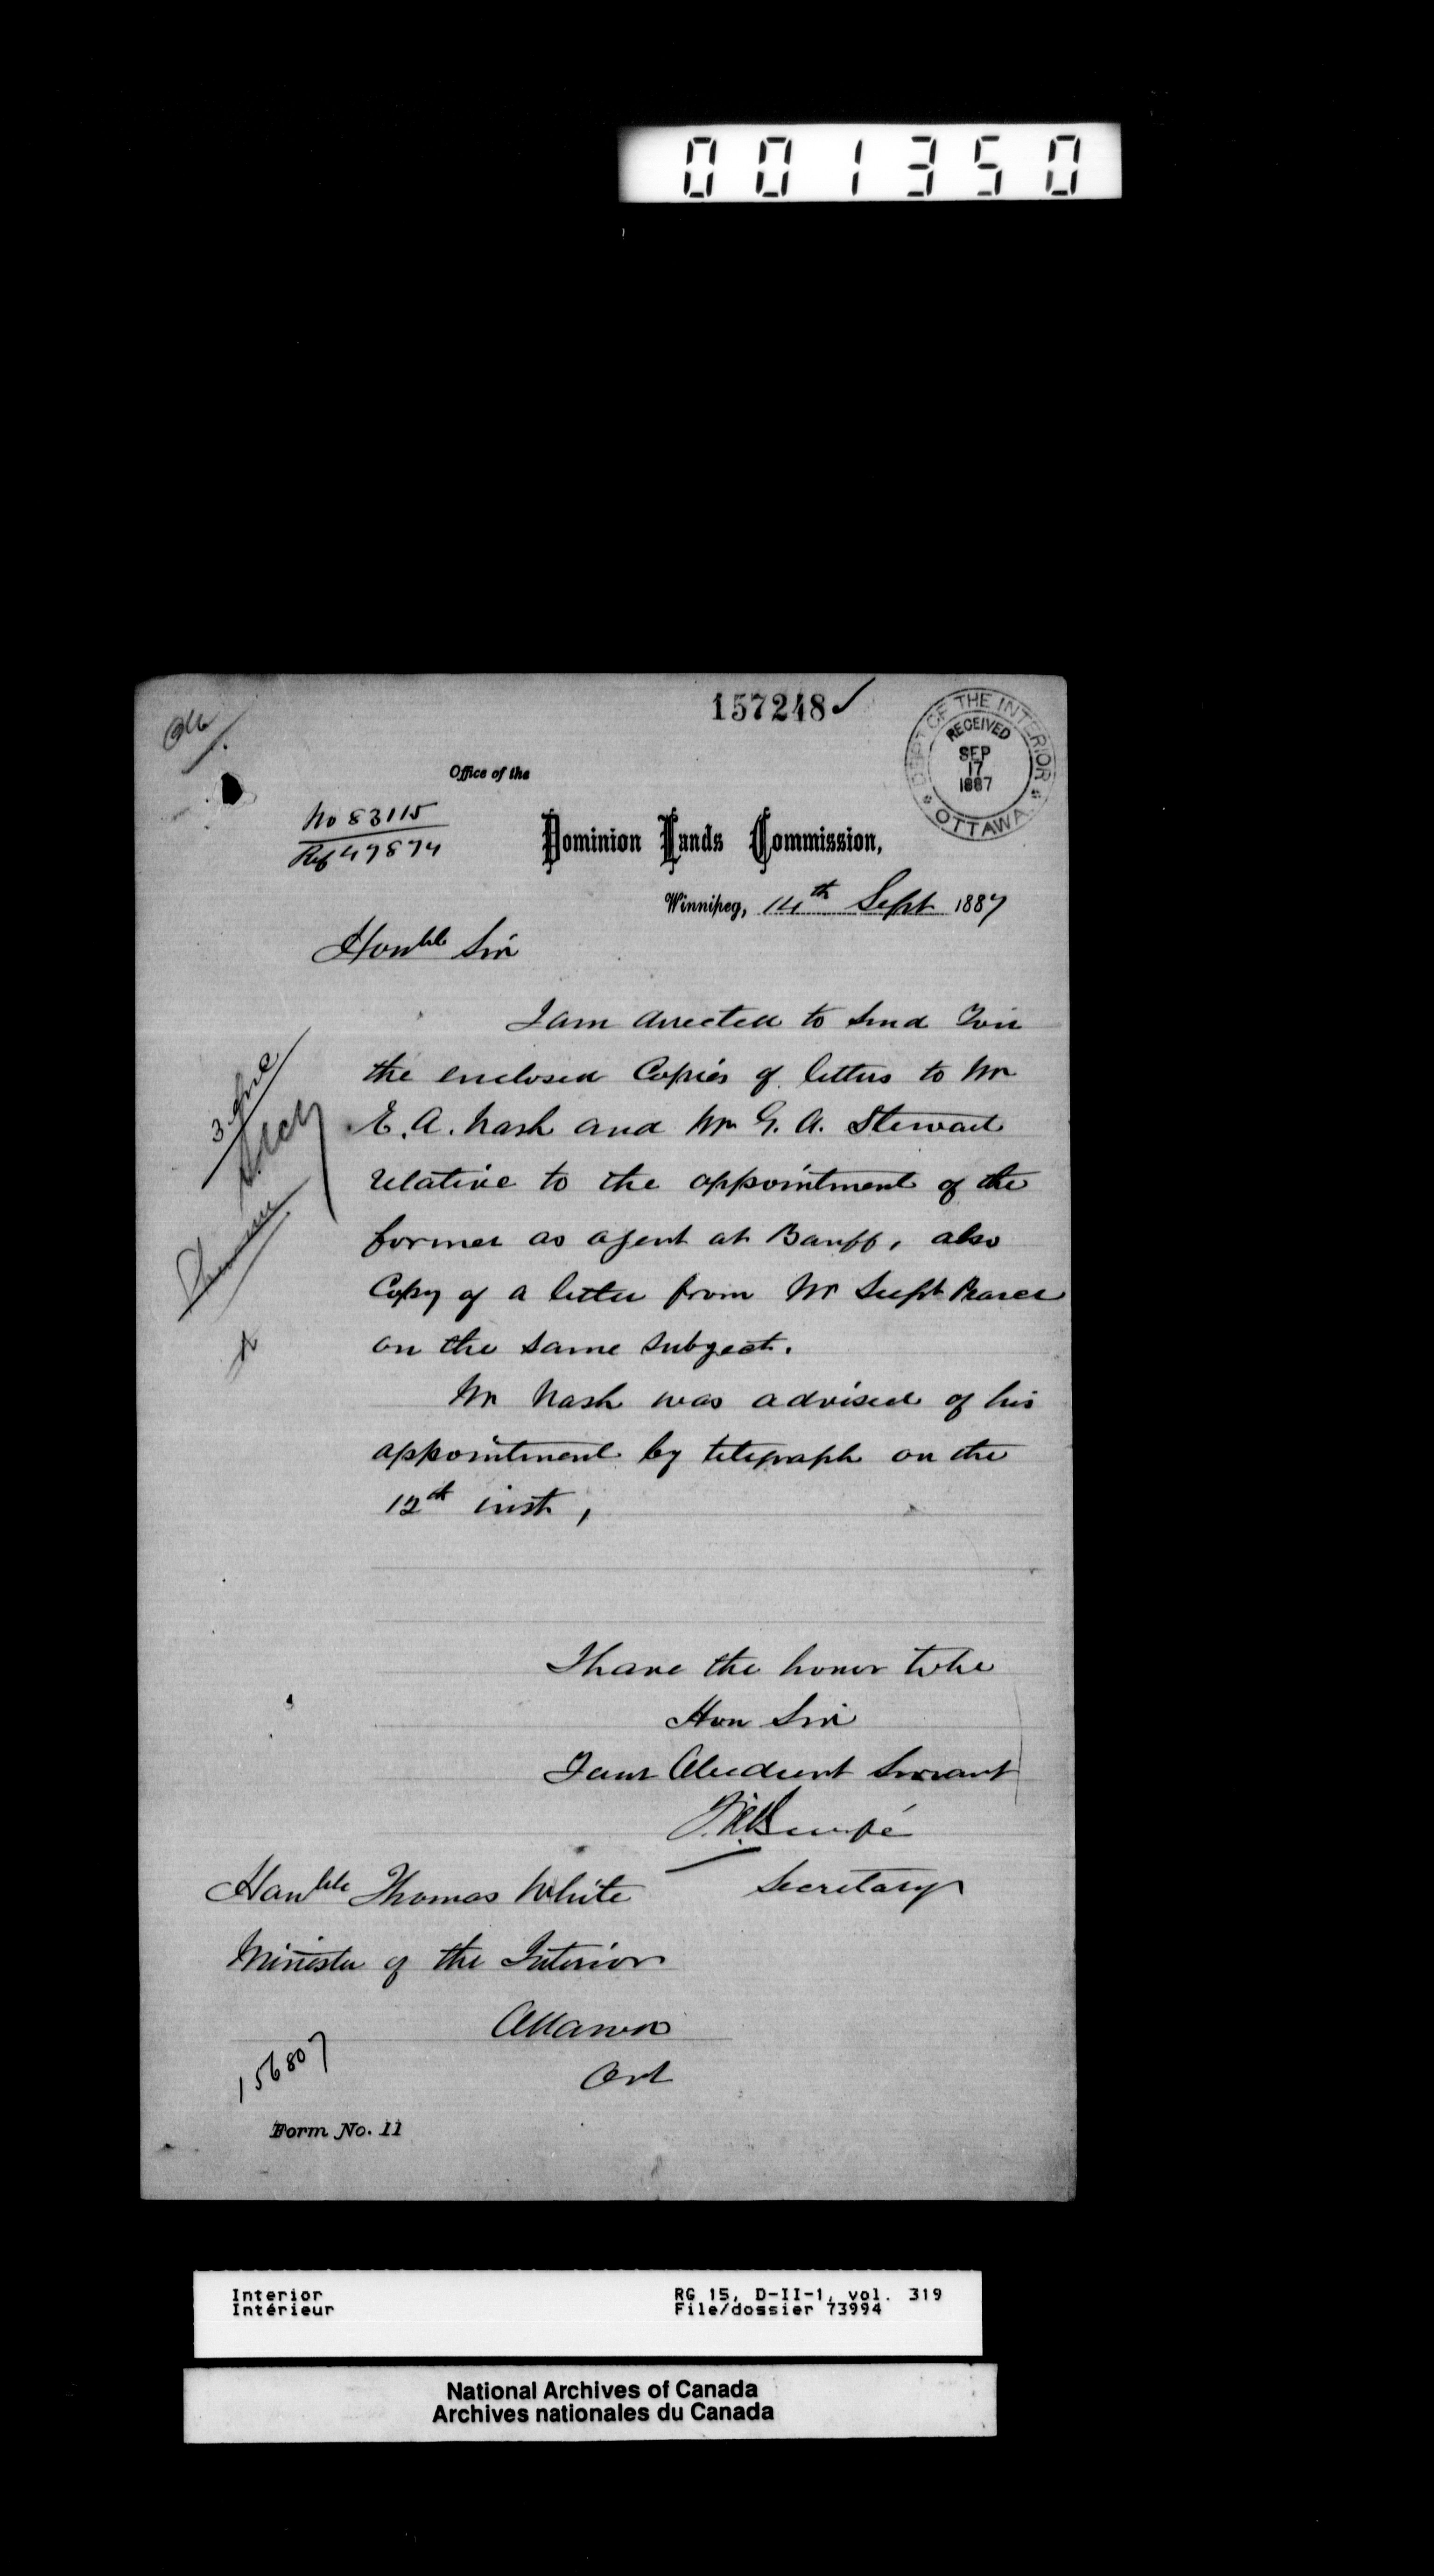 001350
157248 ✓
DEPT OF THE INTERIOR
RECEIVED
SEP
17
1887
OTTAWA
Office of the
No 83115
Ref 47874
Dominion Lands Commission,
Winnipeg, 14th Sept 1887
Honble Sir
I am directed to send You
the enclosed Copies of letters to Mr
E. A. Nash and Mr G. A. Stewart
relative to the appointment of the
former as agent at Banff, also
Copy of a letter from Mr Supt Pearce
on the same subject.
Mr Nash was advised of his
appointment by telegraph on the
12th inst,
3 Enc
I have the honor to be
Hon Sir
Your Obedient Servant
Secretary
Honble Thomas White
Minister of the Interior
Ottawa
Ont
156807
Form No. 11
Interior
Intérieur
RG 15, D-II-1, vol. 319
File/dossier 73994
National Archives of Canada
Archives nationales du Canada